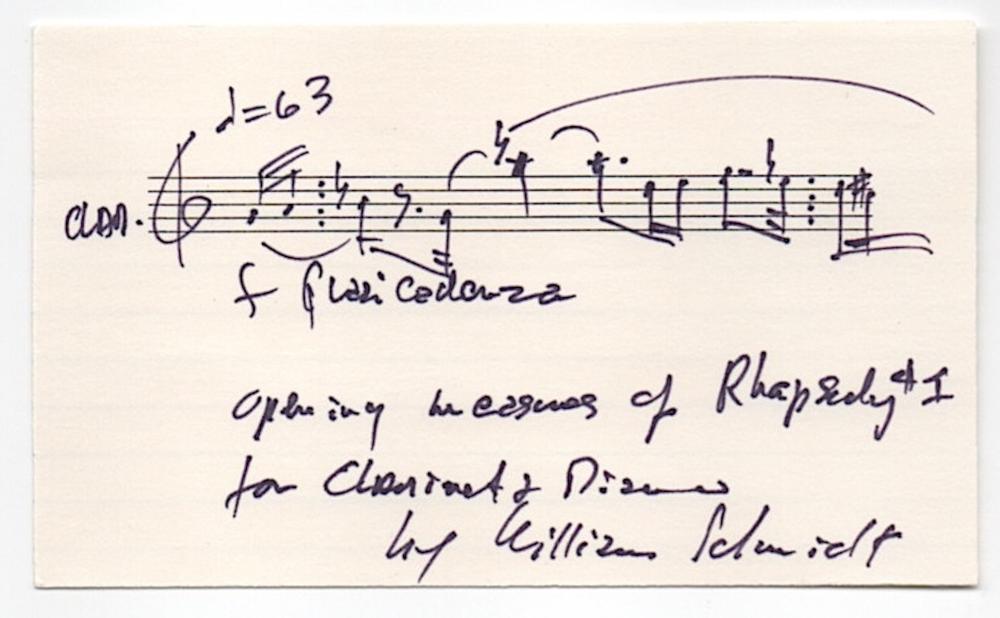 ♩=63
CLAR.
f quasi cadenza
opening measures of Rhapsody #1
for Clarinet & Piano
by William Schmidt